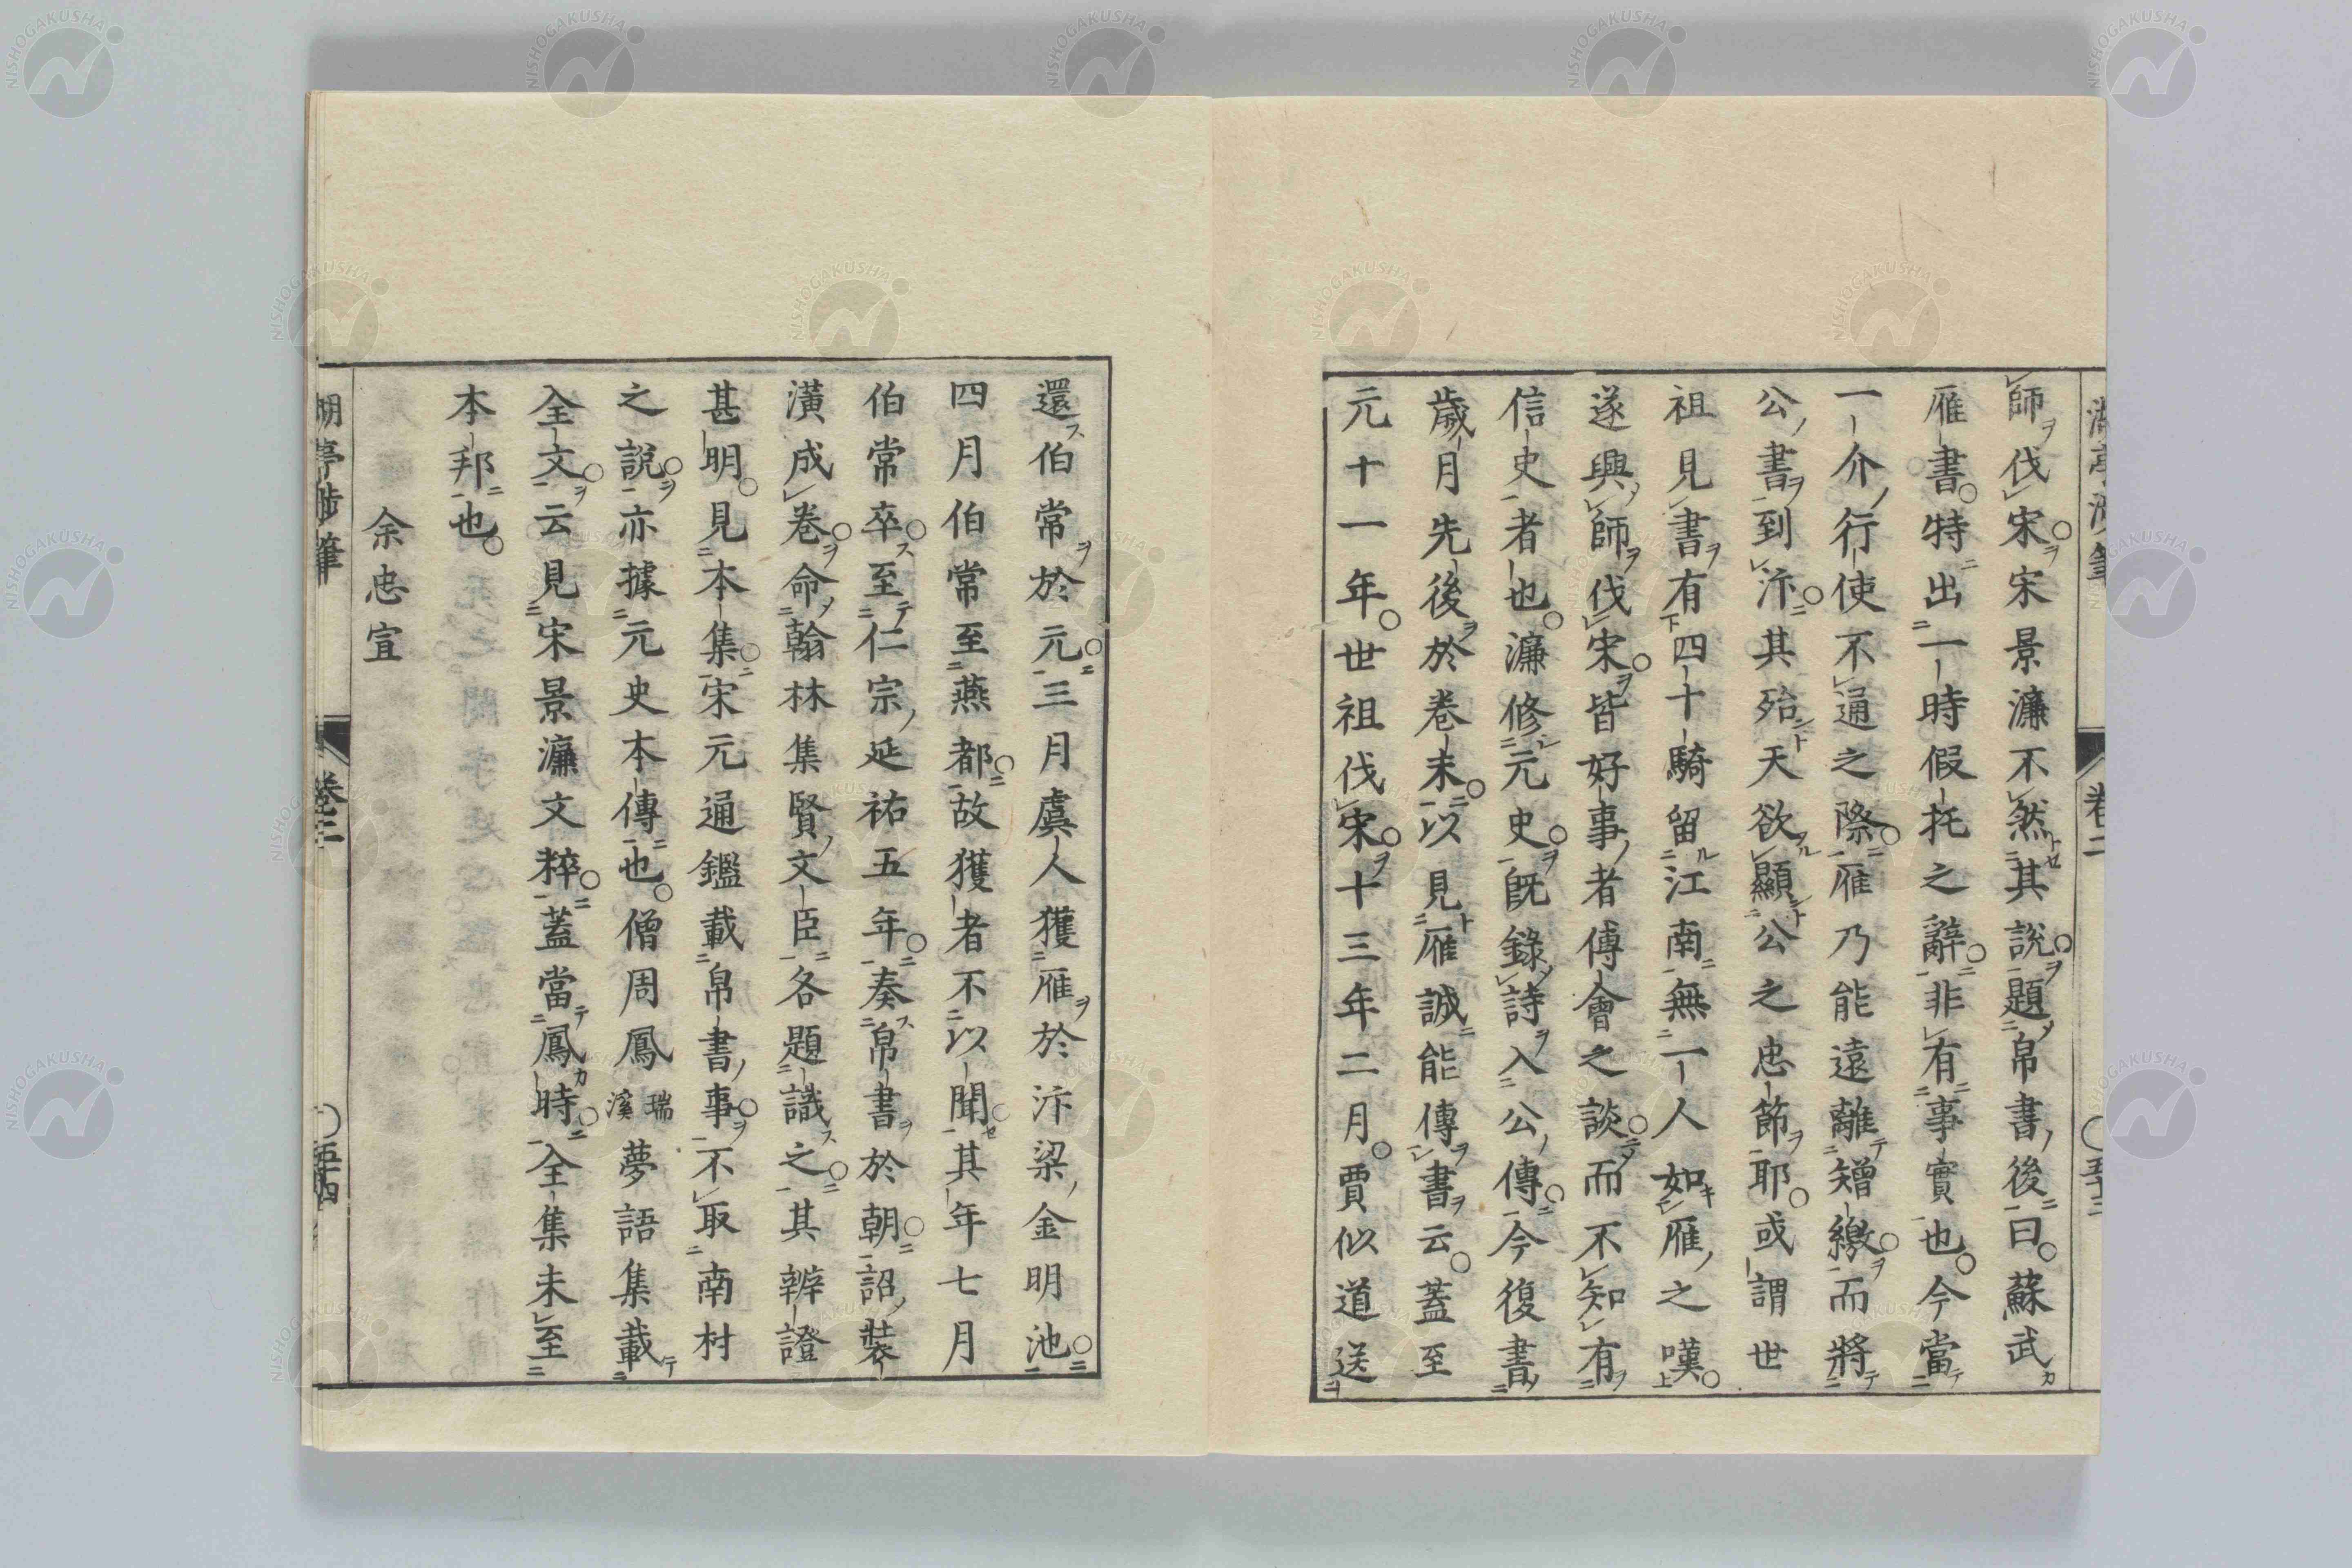 師伐宋宋景濂不然其說題帛書後曰蘇武
雁書特出一時假托之辭非有事實也今當
一介行使不通之際雁乃能遠離矰繳而將
公書到汴其殆天欲顯公之忠節耶或謂世
祖見書有四十騎留江南無一人如雁之嘆
遂興師伐宋皆好事者傅會之談而不知有
信史者也濂修元史既錄詩入公傳今復書
歲月先後於卷末以見雁誠能傳書云蓋至
元十一年世祖伐宋十三年二月賈似道送
還伯常於元三月虞人獲雁於汴梁金明池
四月伯常至燕都故獲者不以聞其年七月
伯常卒至仁宗延祐五年奏帛書於朝詔裝
潢成卷命翰林集賢文臣各題識之其辨證
甚明見本集宋元通鑑載帛書事不取南村
之說亦據元史本傳也僧周鳳瑞溪夢語集載
全文云見宋景濂文粹蓋當鳳時全集未至
本邦也
余忠宣
卷二
NISHOGAKUSHA